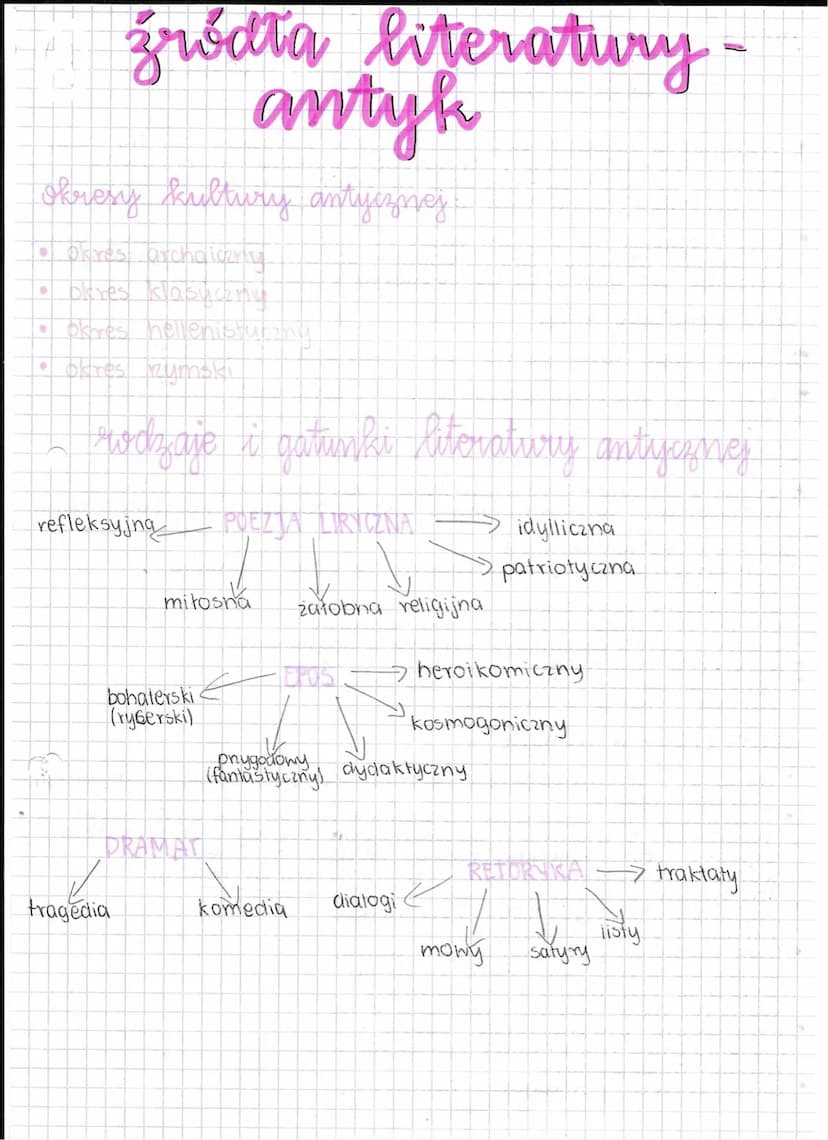 źródła literatury -
antyk
okresy kultury antycznej:
• okres archaiczny
• okres klasyczny
• okres hellenistyczny
• okres rzymski
rodzaje i gatunki literatury antycznej
refleksyjna POEZJA LIRYCZNA idylliczna
patriotyczna
miłosna żałobna religijna
EPOS heroikomiczny
bohaterski
(rycerski)
kosmogoniczny
przygodowy
(fantastyczny) dydaktyczny
DRAMAT
RETORYKA traktaty
tragedia komedia dialogi
listy
mowy satyry